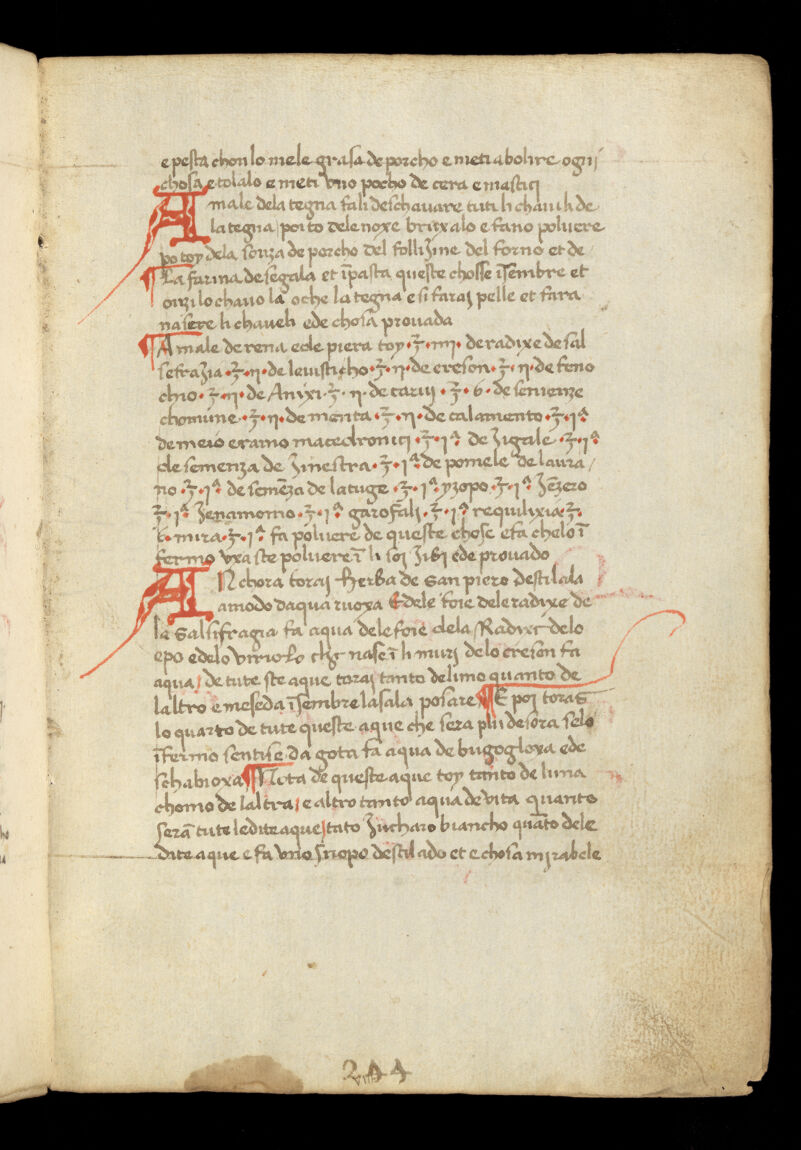 e pesta chon lo mele grasa de porcho e meti a bolire ogni
chosa e tolalo e meti uno pocho de cera e mastici
A male dela tegna fali deschavare tuti li chaueli de
la tegna poi to dele noxe bruxalo e fano poluere
po toy dela sonza de porcho del follizine del forno et de
¶ La farina de segala et ĩpasta queste chosse ĩsembre et
onzi lo chauo la oche la tegna e si faraj pelle et fara
nasere li chaueli ede chosa prouada
¶ A male de rena ede piera toy · ʒ · iiii · de radixe de sal
sefrazia · ʒ · ii · de leuisticho · ʒ · ii · de creson · ʒ · ii · de feno
chio · ʒ · ii · de Anixi · ʒ · ii · de caruj · ʒ · 6 · de semenze
chomune · ʒ · ii · de menta · ʒ · ii · de calamento · ʒ · iª
de meio eramo macedronici · ʒ · iª de zigale · ʒ · iª
de semenza de zinestra · ʒ · iª de pomele de laura
no · ʒ · iª de semēza de latuge · ʒ · iª yzopo · ʒ · iª zēzero
ʒ · iª zenamomo · ʒ · iª garofali · ʒ · iª requilixia · ʒ ·
mira · ʒ · iª fa poluere de queste chose e fa chelo ĩ
fermo uxa ste poluere ĩ li soi zibi ede prouado
ANchora toraj herba de san piero destilala
a modo daqua ruoxa Edele foie dele radixe de
la Salsifragia fa aqua dele foie dela Radixe delo
epo edelo vitriolo che nase ĩ li murj delo creson fa
aqua de tute ste aque toraj tanto delimo quanto de
laltro e meseda ĩsembre lasala posare ¶ E poj toras
lo quarto de tute queste aque che sera piu desora selo
ĩfermo sentise da gota fa aqua de bugogloxa ede
schabioxa ¶ Nota de queste aque toy tanto de luna
chomo de laltra e altro tanto aqua de vita quanto
serā tute ledite aque tāto zucharo biancho quāto dele
dite aque e fa uno siropo destilado et e chosa mjrabele
244